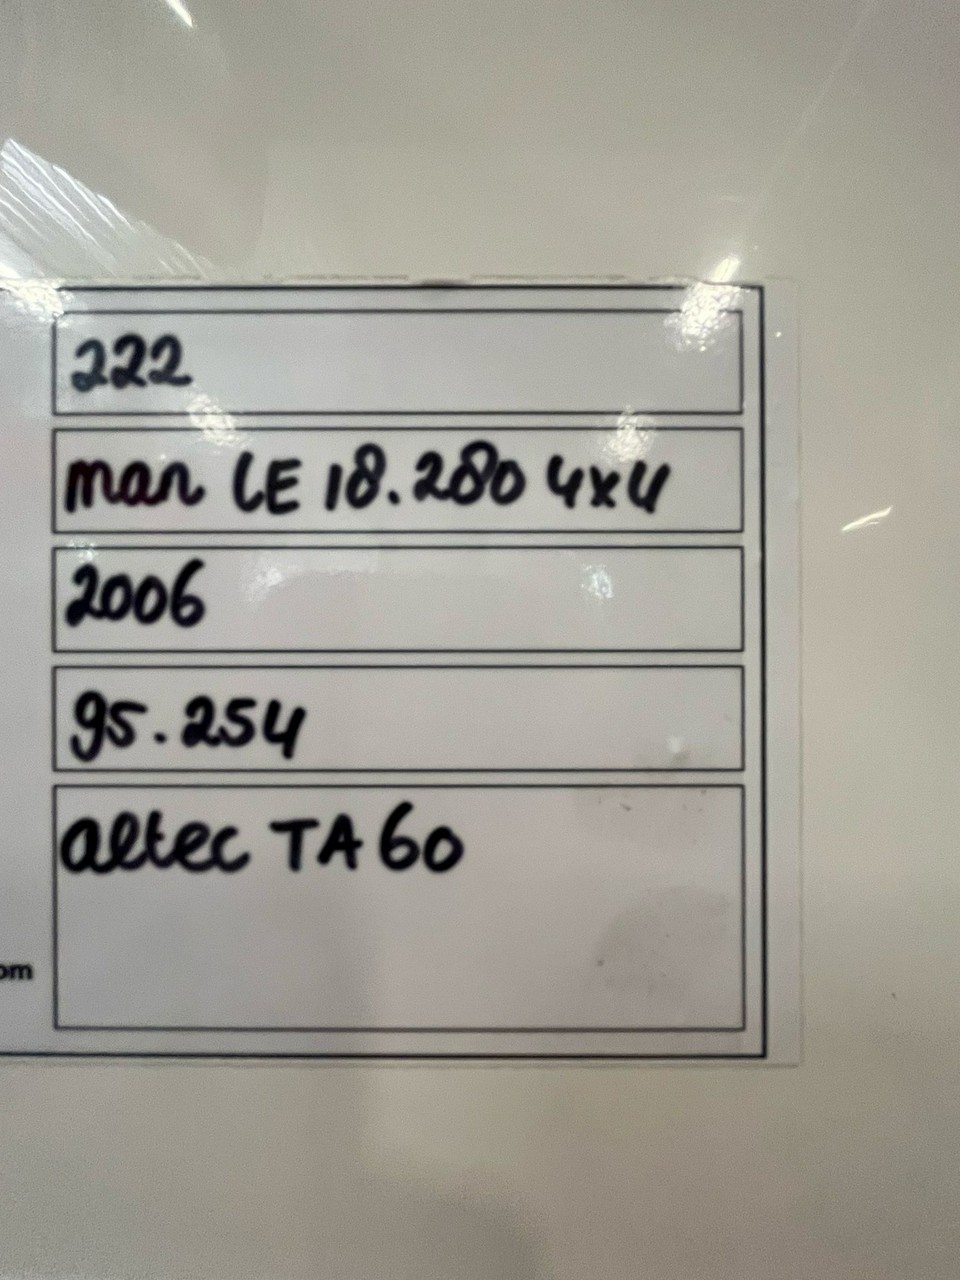 222
man LE 18.280 4x4
2006
95.254
altec TA 60
om